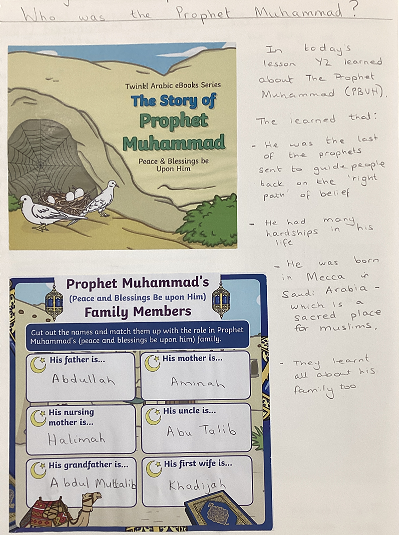 Who was the Prophet Muhammad?
Twinkl Arabic eBooks Series
The Story of
Prophet
Muhammad
Peace & Blessings be
Upon Him
In todays
lesson Y2 learned
about The Prophet
Muhammad (PBUH).
The learned that:
- He was the last
of the prophets
sent to guide people
back on the 'right
path' of belief
- He had many
hardships in his
life
- He was born
in Mecca &
Saudi Arabia -
which is a
sacred place
for muslims.
- They learnt
all about his
family too
Prophet Muhammad's
(Peace and Blessings Be upon Him)
Family Members
Cut out the names and match them up with the role in Prophet
Muhammad's (peace and blessings be upon him) family.
His father is...
Abdullah
His mother is...
Aminah
His nursing
mother is...
Halimah
His uncle is...
Abu Talib
His grandfather is...
Abdul Muttalib
His first wife is...
Khadijah